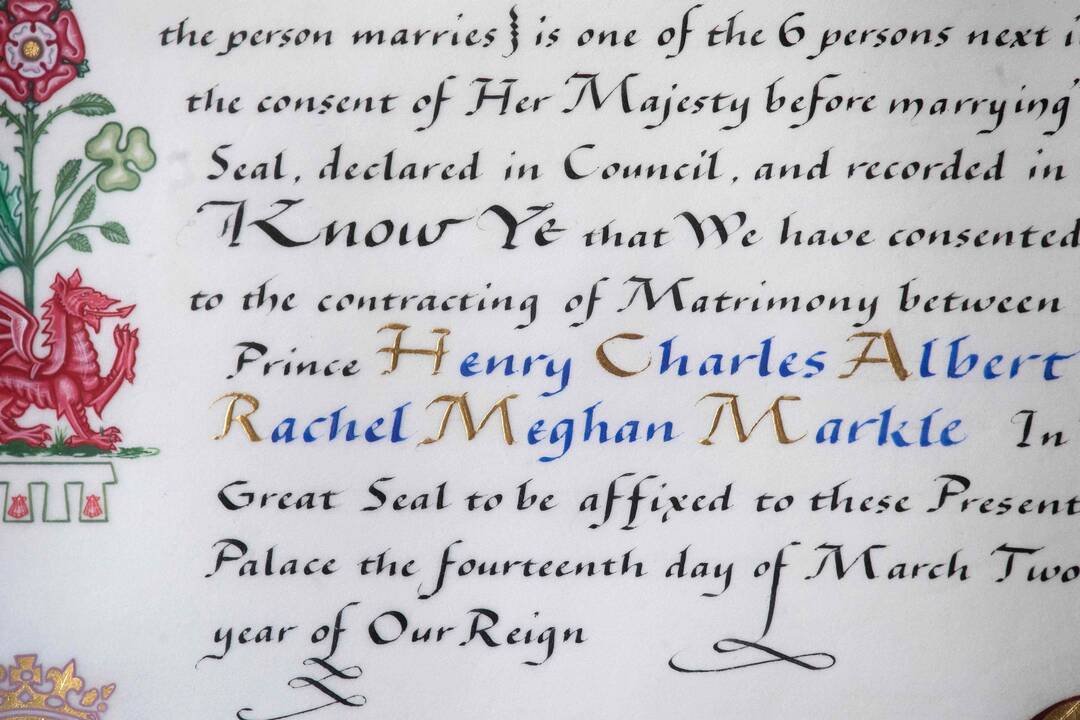 the person marries} is one of the 6 persons next
the consent of Her Majesty before marrying
Seal, declared in Council, and recorded in
Know Ye that We have consented
to the contracting of Matrimony between
Prince Henry Charles Albert
Rachel Meghan Markle In
Great Seal to be affixed to these Present
Palace the fourteenth day of March Two
year of Our Reign